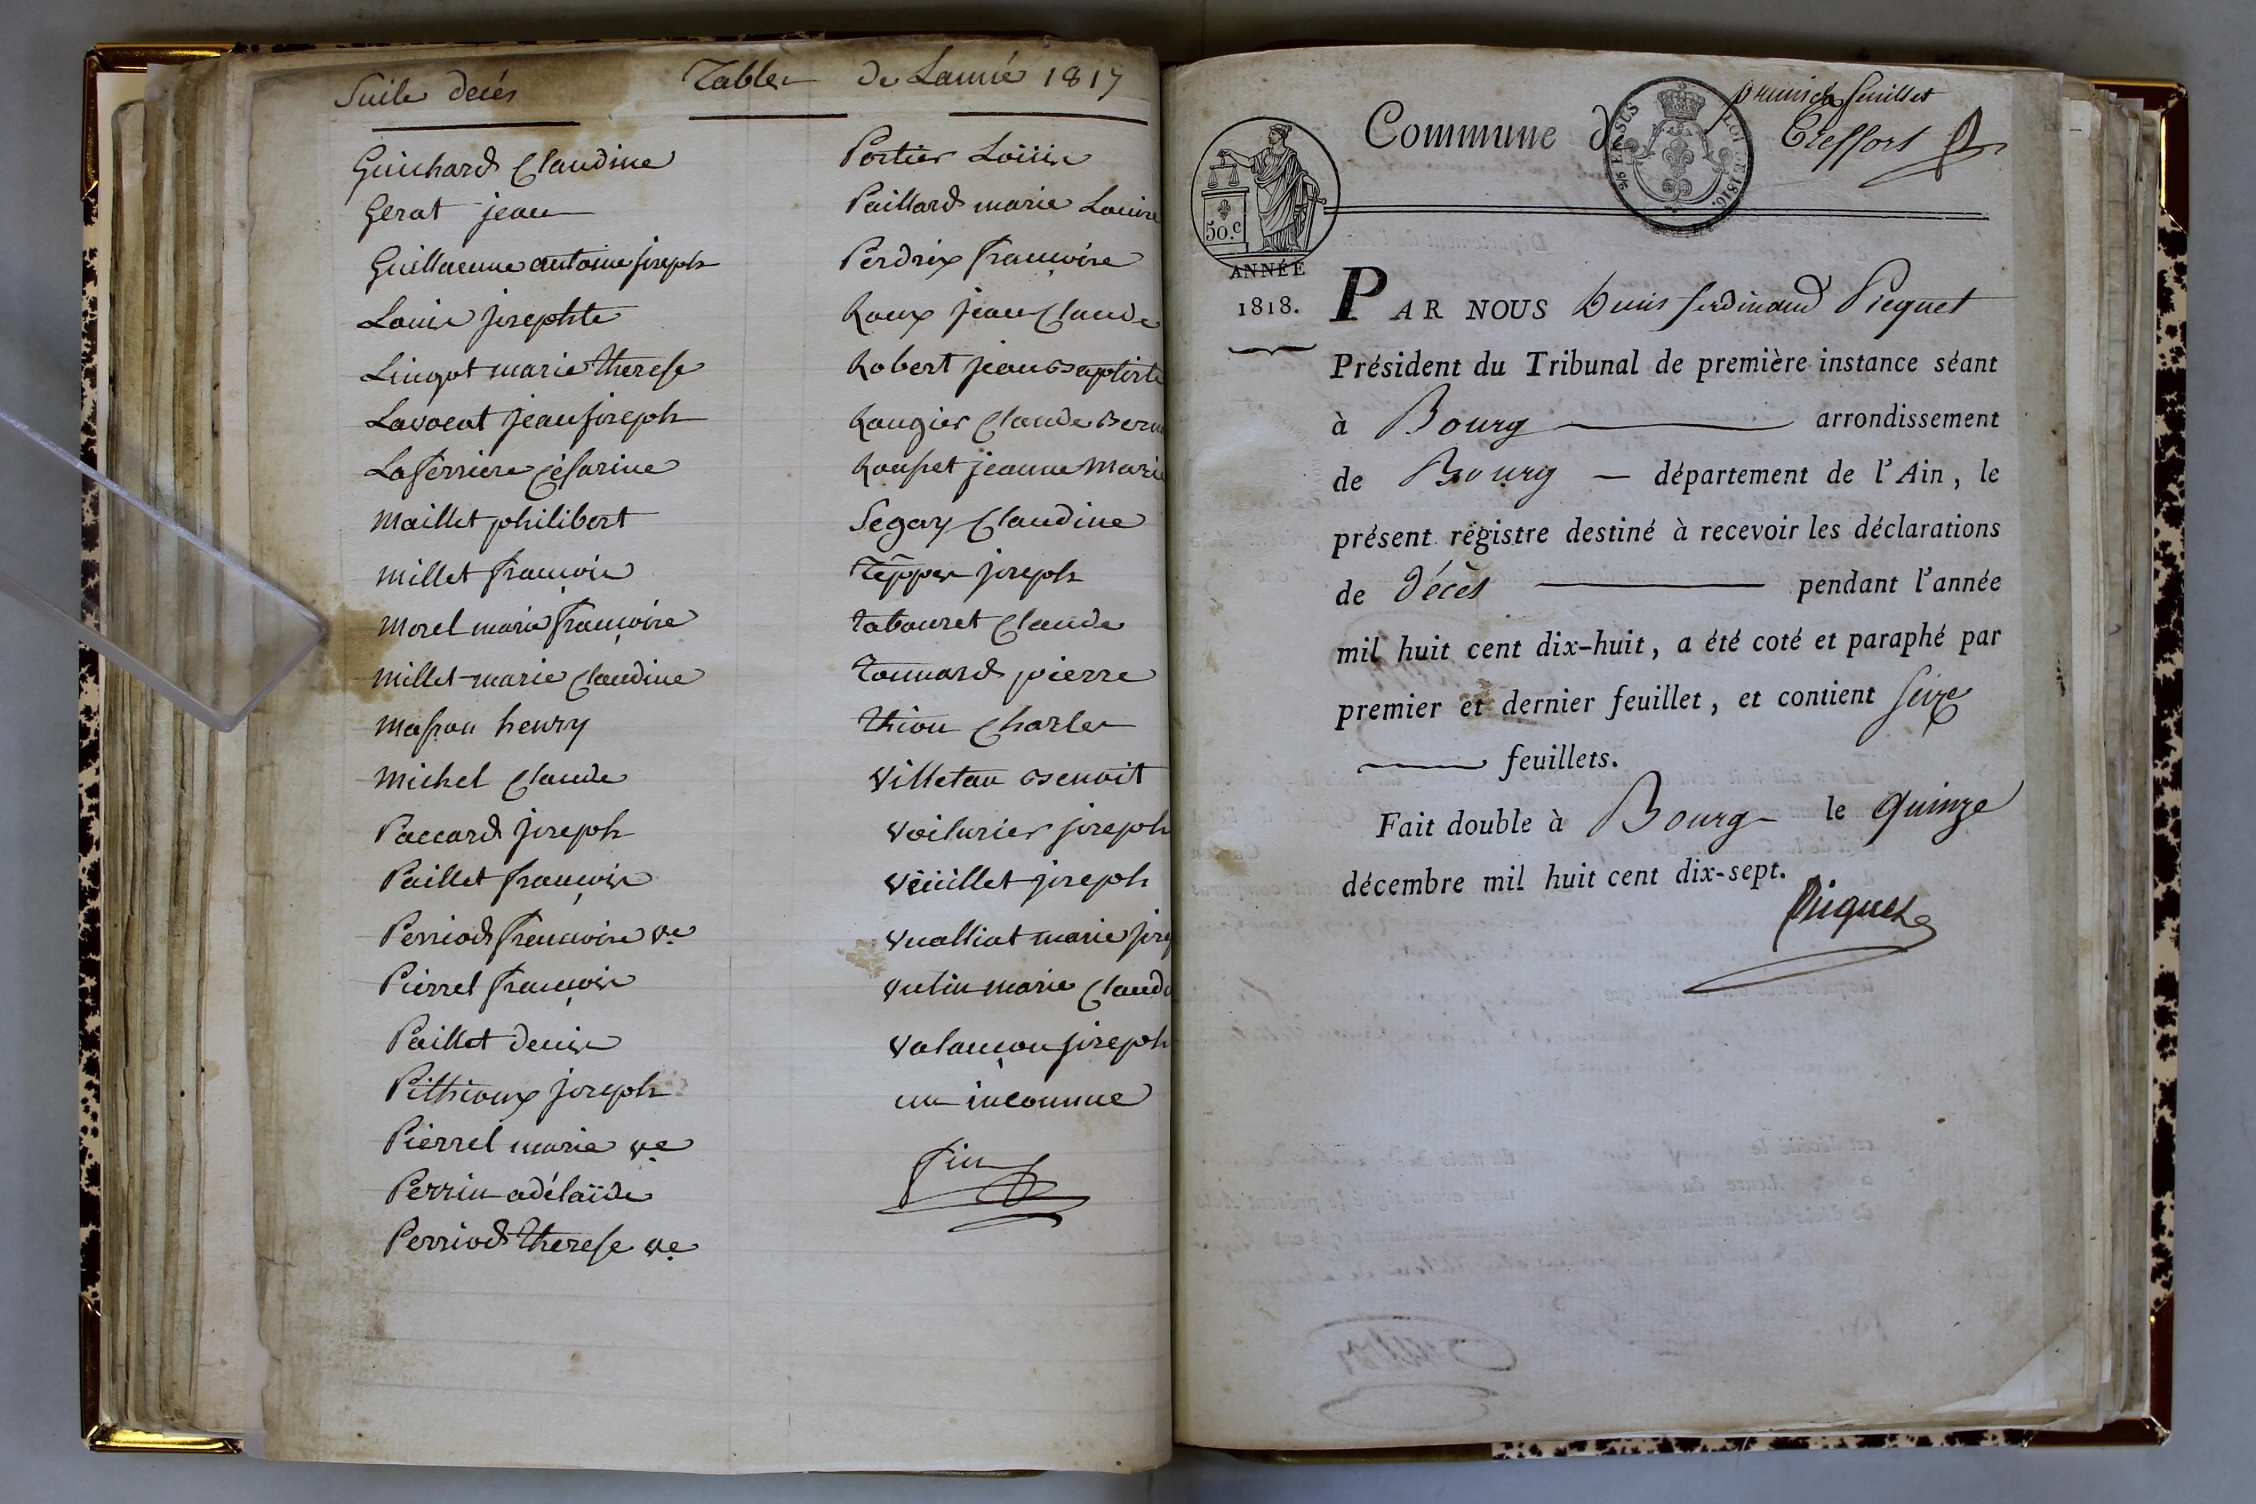 Suite decés Tables De Lannée 1817
Guichard Claudine
Gerat jean
Guillaume antoine joseph
Louis josephte
Lingot marie therese
Lavocat jean joseph
Laferriere Césarine
Maillet philibert
Millet francois
Morel marie françoise
Millet marie Claudine
Masson henry
Michel Claude
Paccard joseph
Paillet françois
Perriod françoise ve
Pierrel françois
Paillet denis
Pithioux joseph
Pierrel marie ve
Perrin adélaïde
Perriod therese ve
Portier Loüis
Paillard marie Louise
Perdrix françoise
Roux jean Claude
Robert jean Baptiste
Rougier Claude Bern
Rousset jeanne Marie
Segay Claudine
Teppe joseph
Tabouret Claude
Tonnard pierre
Thion Charles
Villetan Benoit
Voiturier joseph
Veüillet joseph
Vualliat marie jose
Vutin marie Claud
Valançon joseph
un inconnue
fin
premier feuillet
Commune de Treffort
25 EN SUS
LOI DE 1816.
50.c
ANNÉE
1818.
PAR NOUS Denis ferdinand Picquet
Président du Tribunal de première instance séant
à Bourg arrondissement
de Bourg — département de l'Ain, le
présent régistre destiné à recevoir les déclarations
de décès pendant l'année
mil huit cent dix-huit, a été coté et paraphé par
premier et dernier feuillet, et contient seize
feuillets.
Fait double à Bourg le quinze
décembre mil huit cent dix-sept.
Picquet